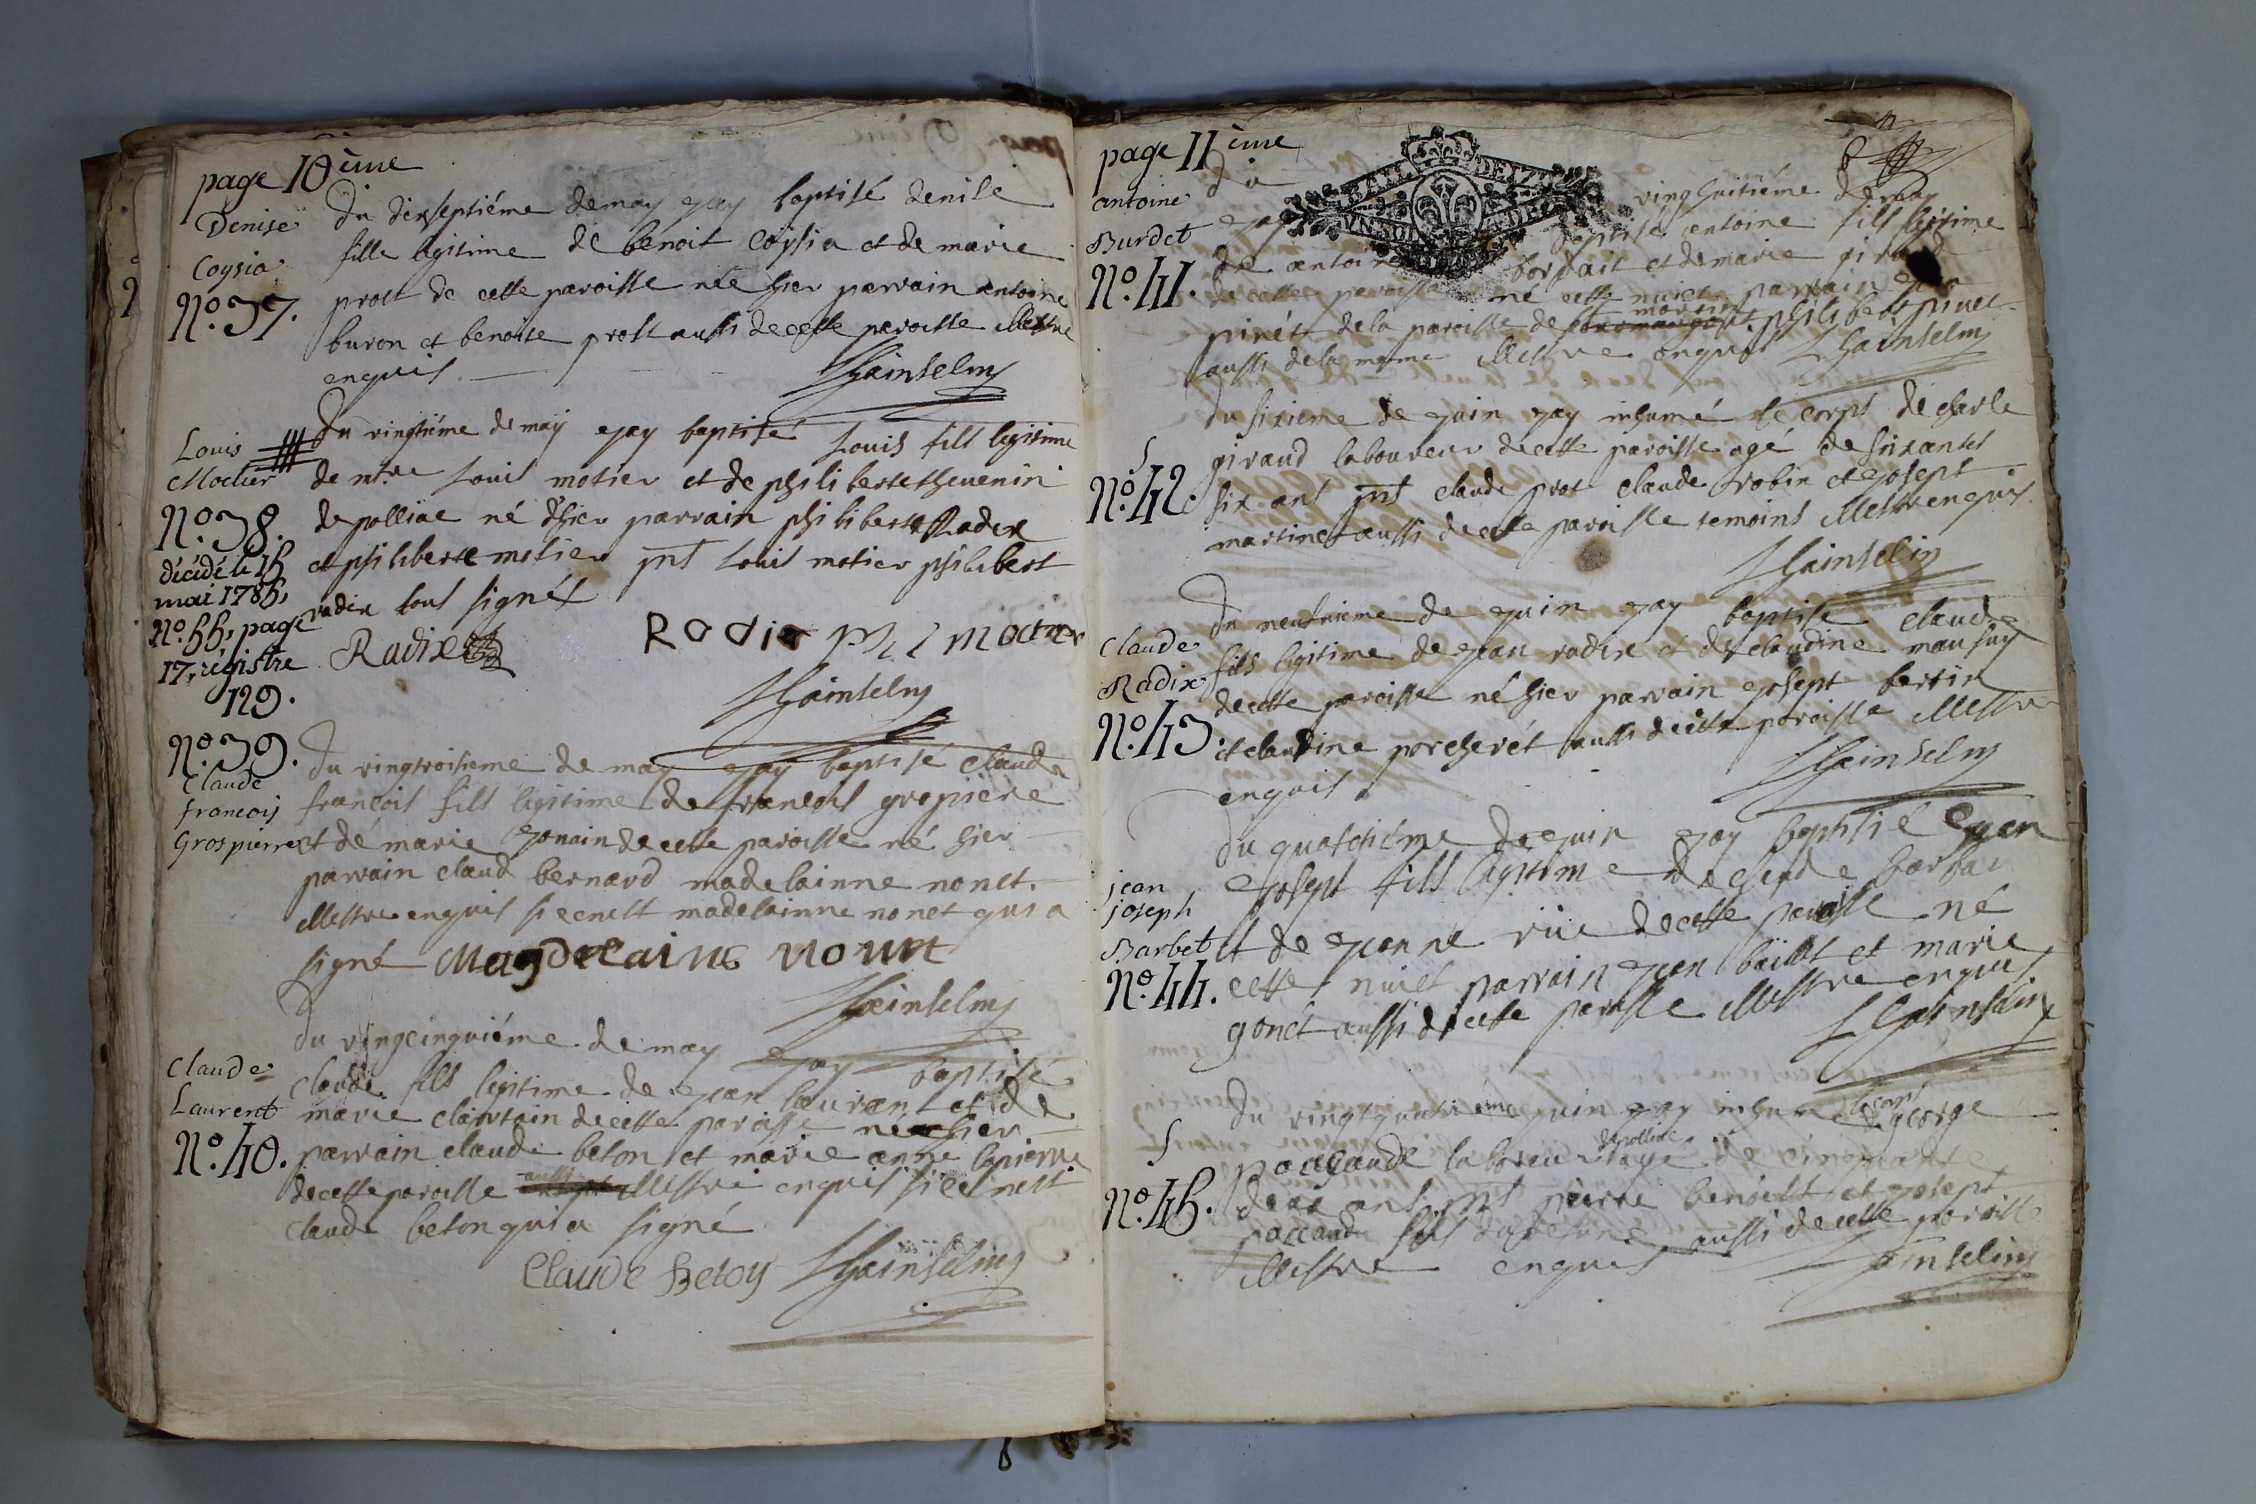 page 10 ème
Denise
Coysia
N.o 37.
Du dixseptiéme de may jay baptisé denise
fille legitime de benoit coysia et de marie
prost de cette paroisse née hier parrain antoine
buron et benoite prost aussi de cette paroisse illestre
enquis
Louis
Motier
N.o 38.
décédé le 15
mai 1785,
N.o 55, page
17, régistre
129.
Du vingtiéme de may jay baptisé Louis fils legitime
de mtre Louis motier et de philiberte thevenin
de polliac né d'hier parrain philibert Radix
et philiberte motier pnt Louis motier philibert
radix sous signés
Radix
Radix motier
N.o 39.
Claude
françois
Grospierre
Du vingtroisieme de may jay baptisé claude
françois fils legitime de françois gropiere
et dé marie gonain de cette paroisse né hier
parrain claud bernard madelainne nonet
illestre enquis si ce nest madelainne nonet qui a
signé Magdelaine nonet
Claude
Laurent
N.o 40.
Du vingcinquiéme de may jay baptisé
claude fils legitime de jean laurant et de
marie clairtain de cette paroisse né hier
parrain claude beton et marie anne lapierre
de cette paroisse aussi illestre enquis si ce nest
claude beton qui a signé
Claude Betoy
page 11 ème
antoine
Burdet
N.o 41.
Du vinghuitiéme de may
jay baptisé antoine fils legitime
de antoine et de marie giraud
de cette paroisse né cette nuict parrain
pinét de la paroisse de philibert pinet
aussi de la meme illestre enquis
S
N.o 42.
Du sixieme de juin jay inhumé le corps de charle
giraud laboureur de cette paroisse agé de soixante
six ans pnt claude prot claude robin et josept
martinet aussi de cette paroisse temoins illestre enquis
Claude
Radix
N.o 43.
Du neufvieme de juin jay baptisé claude
fils legitime de jean radix et de claudine maufuy
de cette paroisse né hier parrain josept bertin
et claudine porcherét aussi de cette paroisse illestre
enquis
jean
joseph
Barbet
N.o 44.
Du quatotiéme de juin jay baptisé jean
josept fils legitime de claude barbai
et de jeanne rüe de cette paroisse né
cette nuict parrain jean et marie
gonet aussi de cette paroisse illestre enquis
S
N.o 45.
Du vingtquatriéme juin jay inhumé le corps de george
paccaude laboureur de polliac agé de cinquante
deux ans pnt pierre benoist et josept
paccaude aussi de cette paroisse
illestre enquis